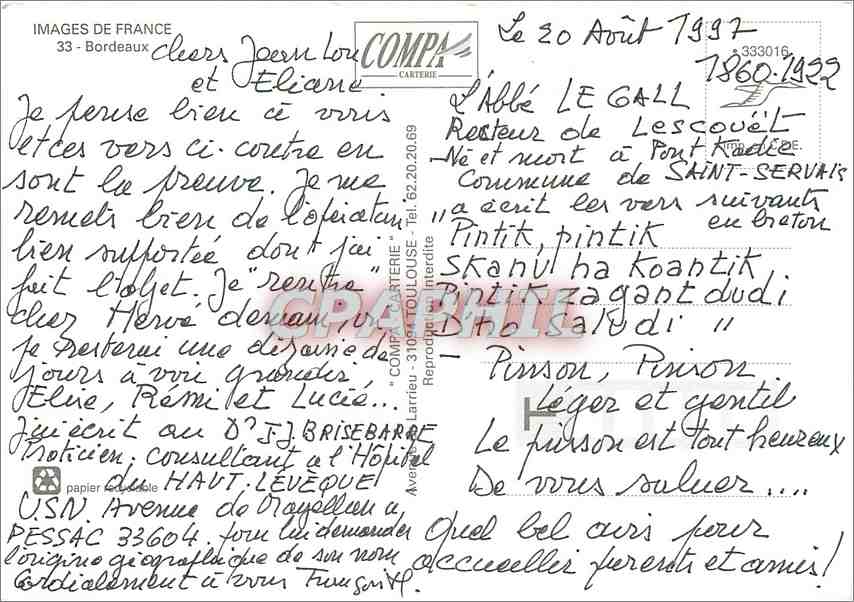 IMAGES DE FRANCE
33 - Bordeaux
COMPA
CARTERIE
333016
Le 20 Août 1997
1860-1922
chers Jean Lou
et Eliane
Je pense bien à vous
et ces vers ci-contre en
sont la preuve. Je me
remets bien de l'opération
bien supportée dont j'ai
fait l'objet. Je "rentre"
chez Hervé demain, où
je resterai une dizaine de
jours à voir grandir,
Elise, Rémi et Lucie...
J'ai écrit au Dr J.J BRISEBARRE
Praticien-consultant à l'Hôpital
du HAUT-LÉVÊQUE
U.S.N. Avenue de Magellan à
PESSAC 33604 pour lui demander
l'origine géographique de son nom
Cordialement à vous
papier recyclable
" COMPA - CARTERIE "
Avenue Larrieu - 31094 TOULOUSE - Tel. 62.20.20.69
Reproduction interdite
L'Abbé LE GALL
Recteur de Lescouët
- Né et mort à Pont Kadic
Commune de SAINT-SERVAIS
a écrit les vers suivants
en breton
" Pintik, pintik
Skanv ha koantik
Pintik zagant dudi
D'ho saludi "
- Pinson, Pinson
Léger et gentil
Le pinson est tout heureux
De vous saluer....
Quel bel avis pour
accueillir parents et amis!
CPAPHIL